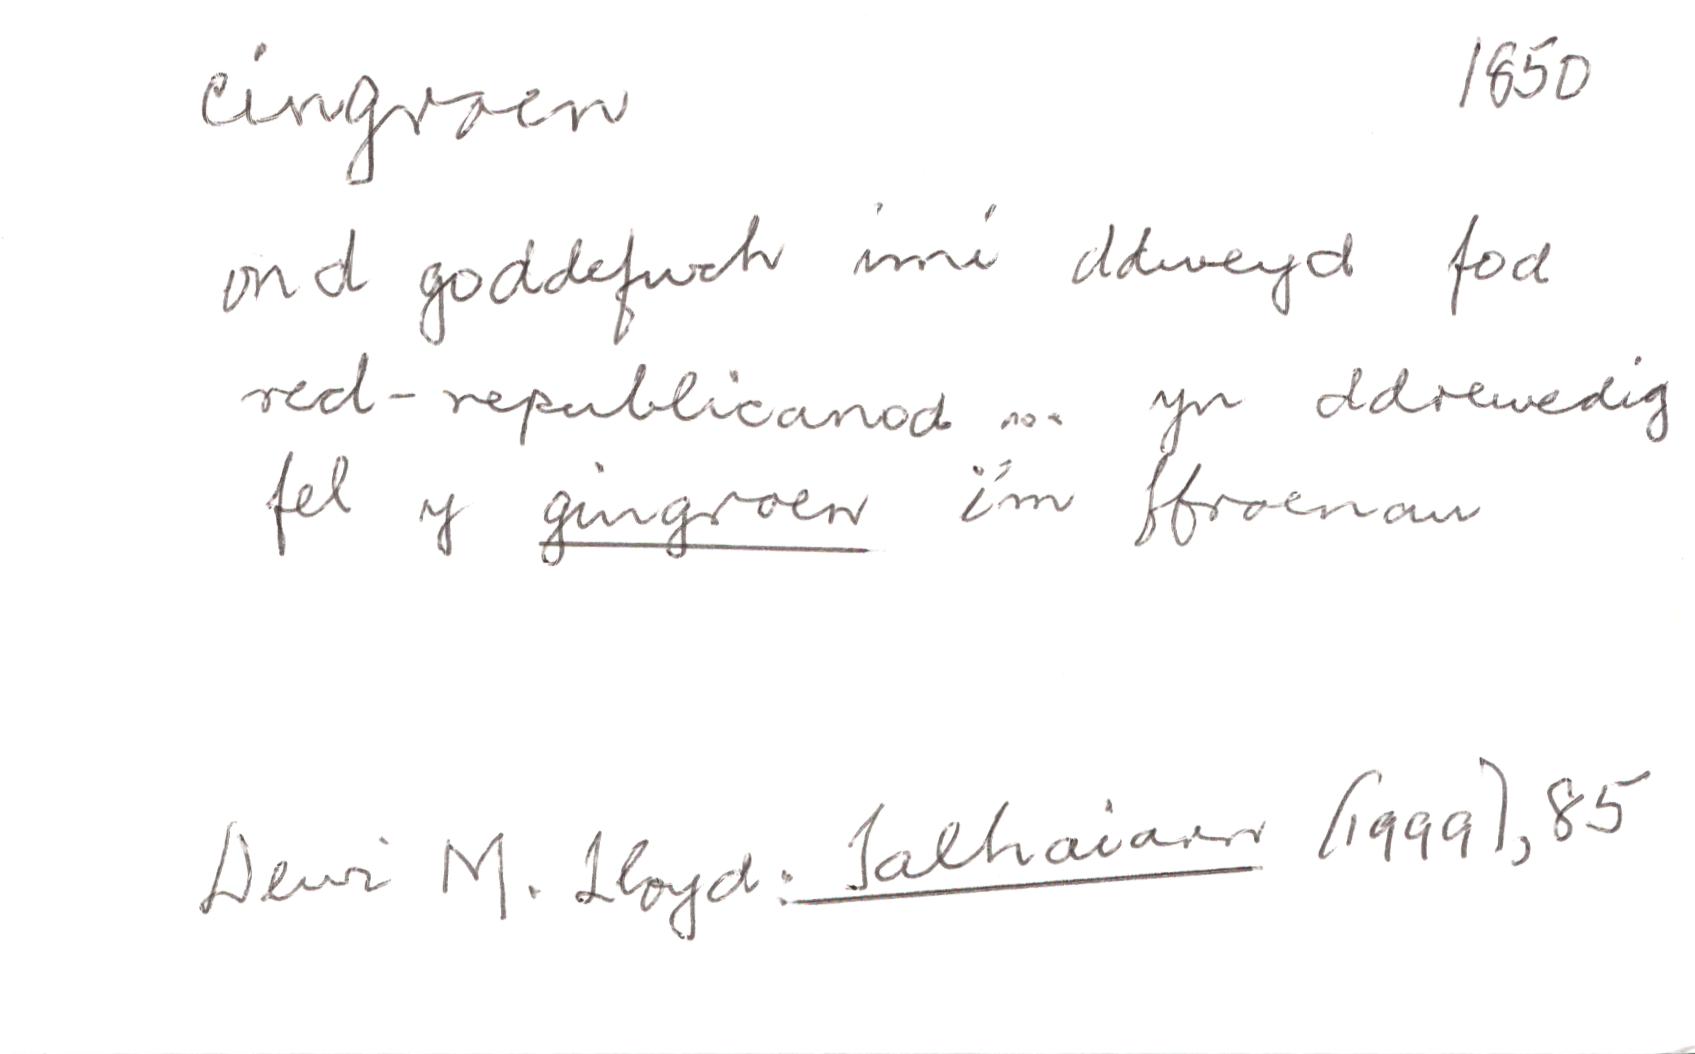 cingroen 1850
ond goddefwch imi ddweyd fod
red-republicanod ... yn ddrewedig
fel y gingroen i'm ffroenau
Dewi M. Lloyd: Talhaiarn (1999), 85